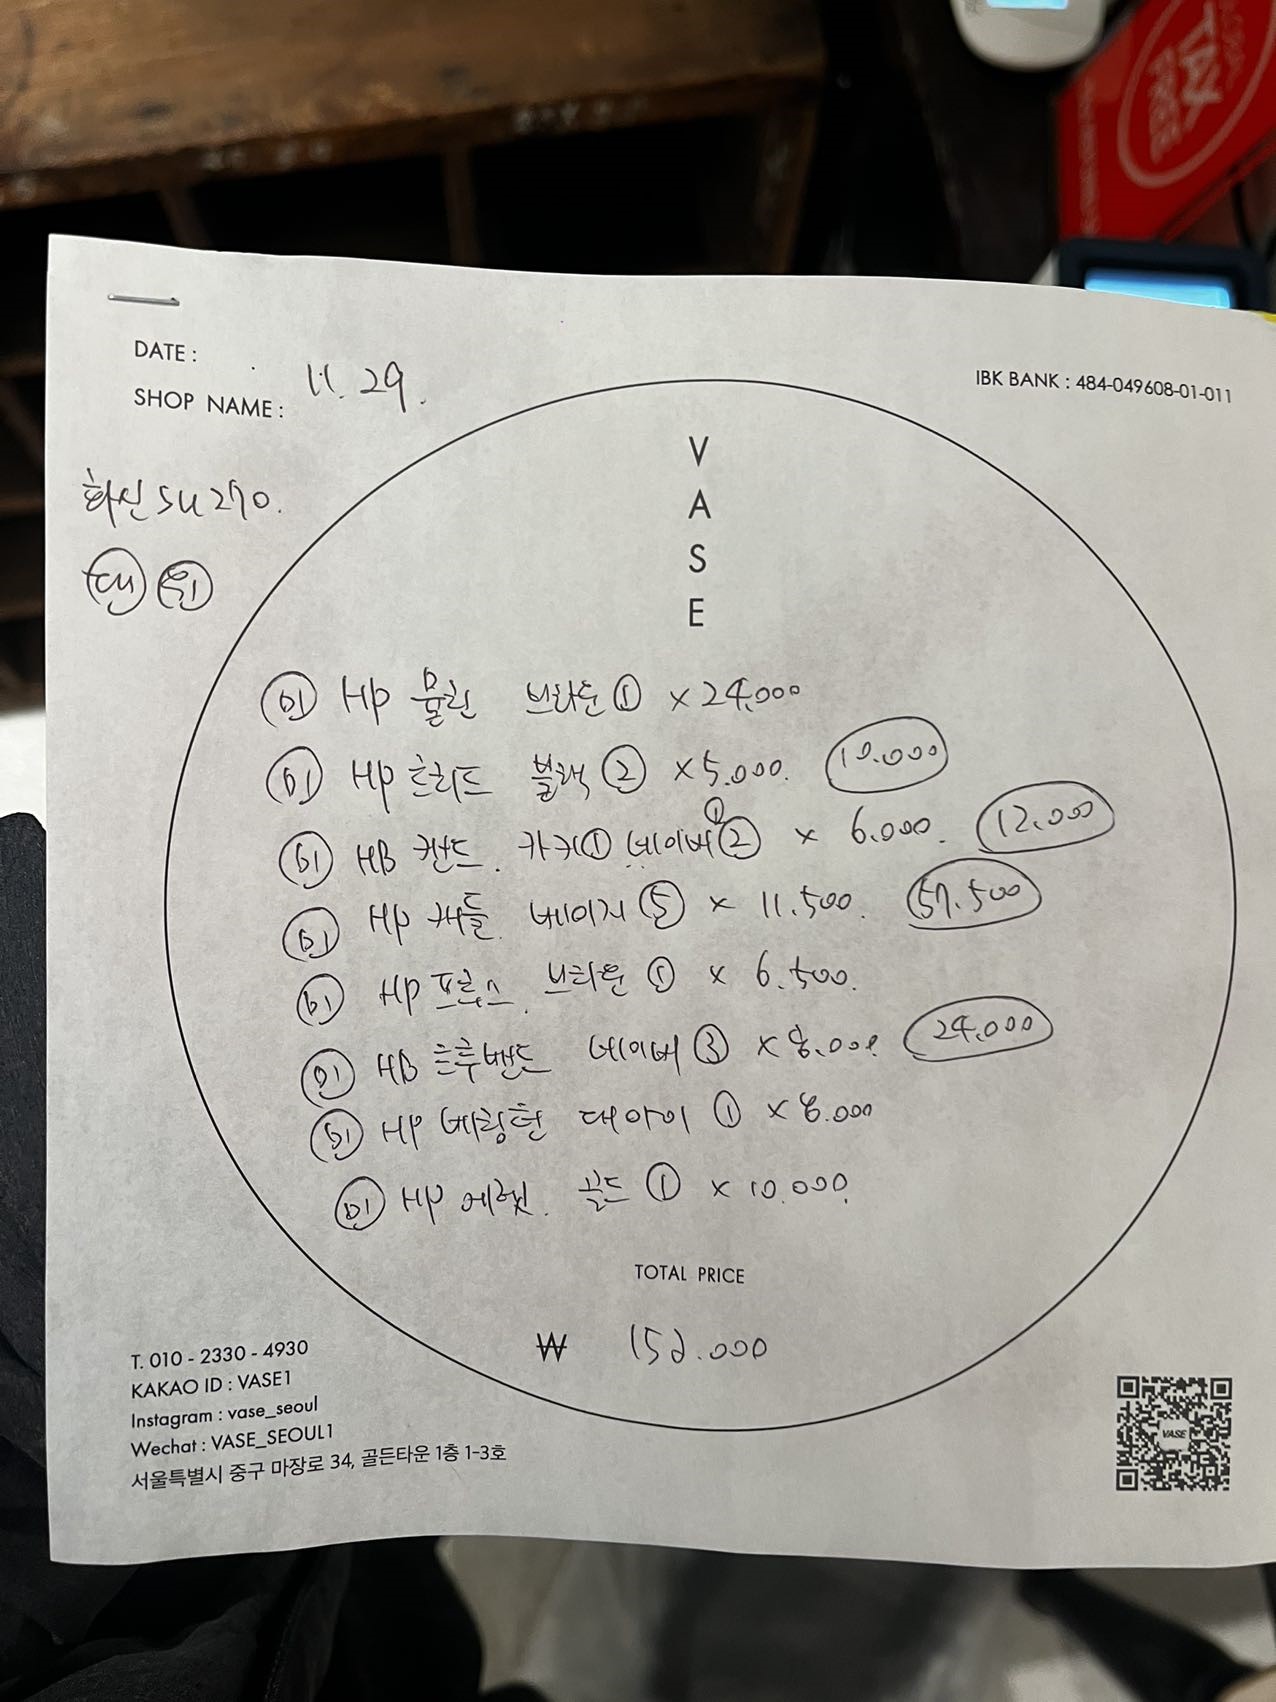 TAX FREE
DATE :
11. 29.
SHOP NAME :
IBK BANK : 484-049608-01-011
화신 SU 270.
V
A
S
E
미 HP 물린 브라운 ① × 24,000
미 HP 흐리드 블랙 ② × 5.000. 10.000
미 HB 캔드. 카키① 네이비 ② ① × 6.000. 12.000
미 HP 캐들 베이지 ⑤ × 11.500. 57.500
미 HP 프루스. 브라운 ① × 6.500.
미 HB 흐루밴드 네이비 ③ × 8.000. 24.000
미 HP ① × 8.000
미 HP 에렛. 골드 ① × 10.000.
TOTAL PRICE
₩ 152.000
T. 010 - 2330 - 4930
KAKAO ID : VASE1
Instagram : vase_seoul
Wechat : VASE_SEOUL1
서울특별시 중구 마장로 34, 골든타운 1층 1-3호
VASE